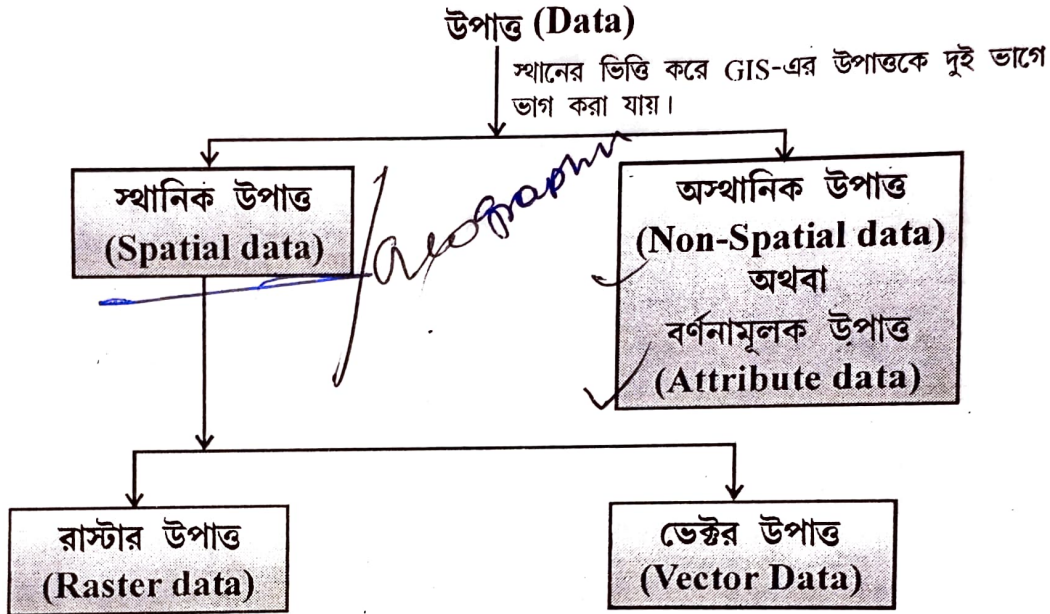 উপাত্ত (Data)
স্থানের ভিত্তি করে GIS-এর উপাত্তকে দুই ভাগে
ভাগ করা যায়।
স্থানিক উপাত্ত
(Spatial data)
অস্থানিক উপাত্ত
(Non-Spatial data)
অথবা
বর্ণনামূলক উপাত্ত
(Attribute data)
রাস্টার উপাত্ত
(Raster data)
ভেক্টর উপাত্ত
(Vector Data)